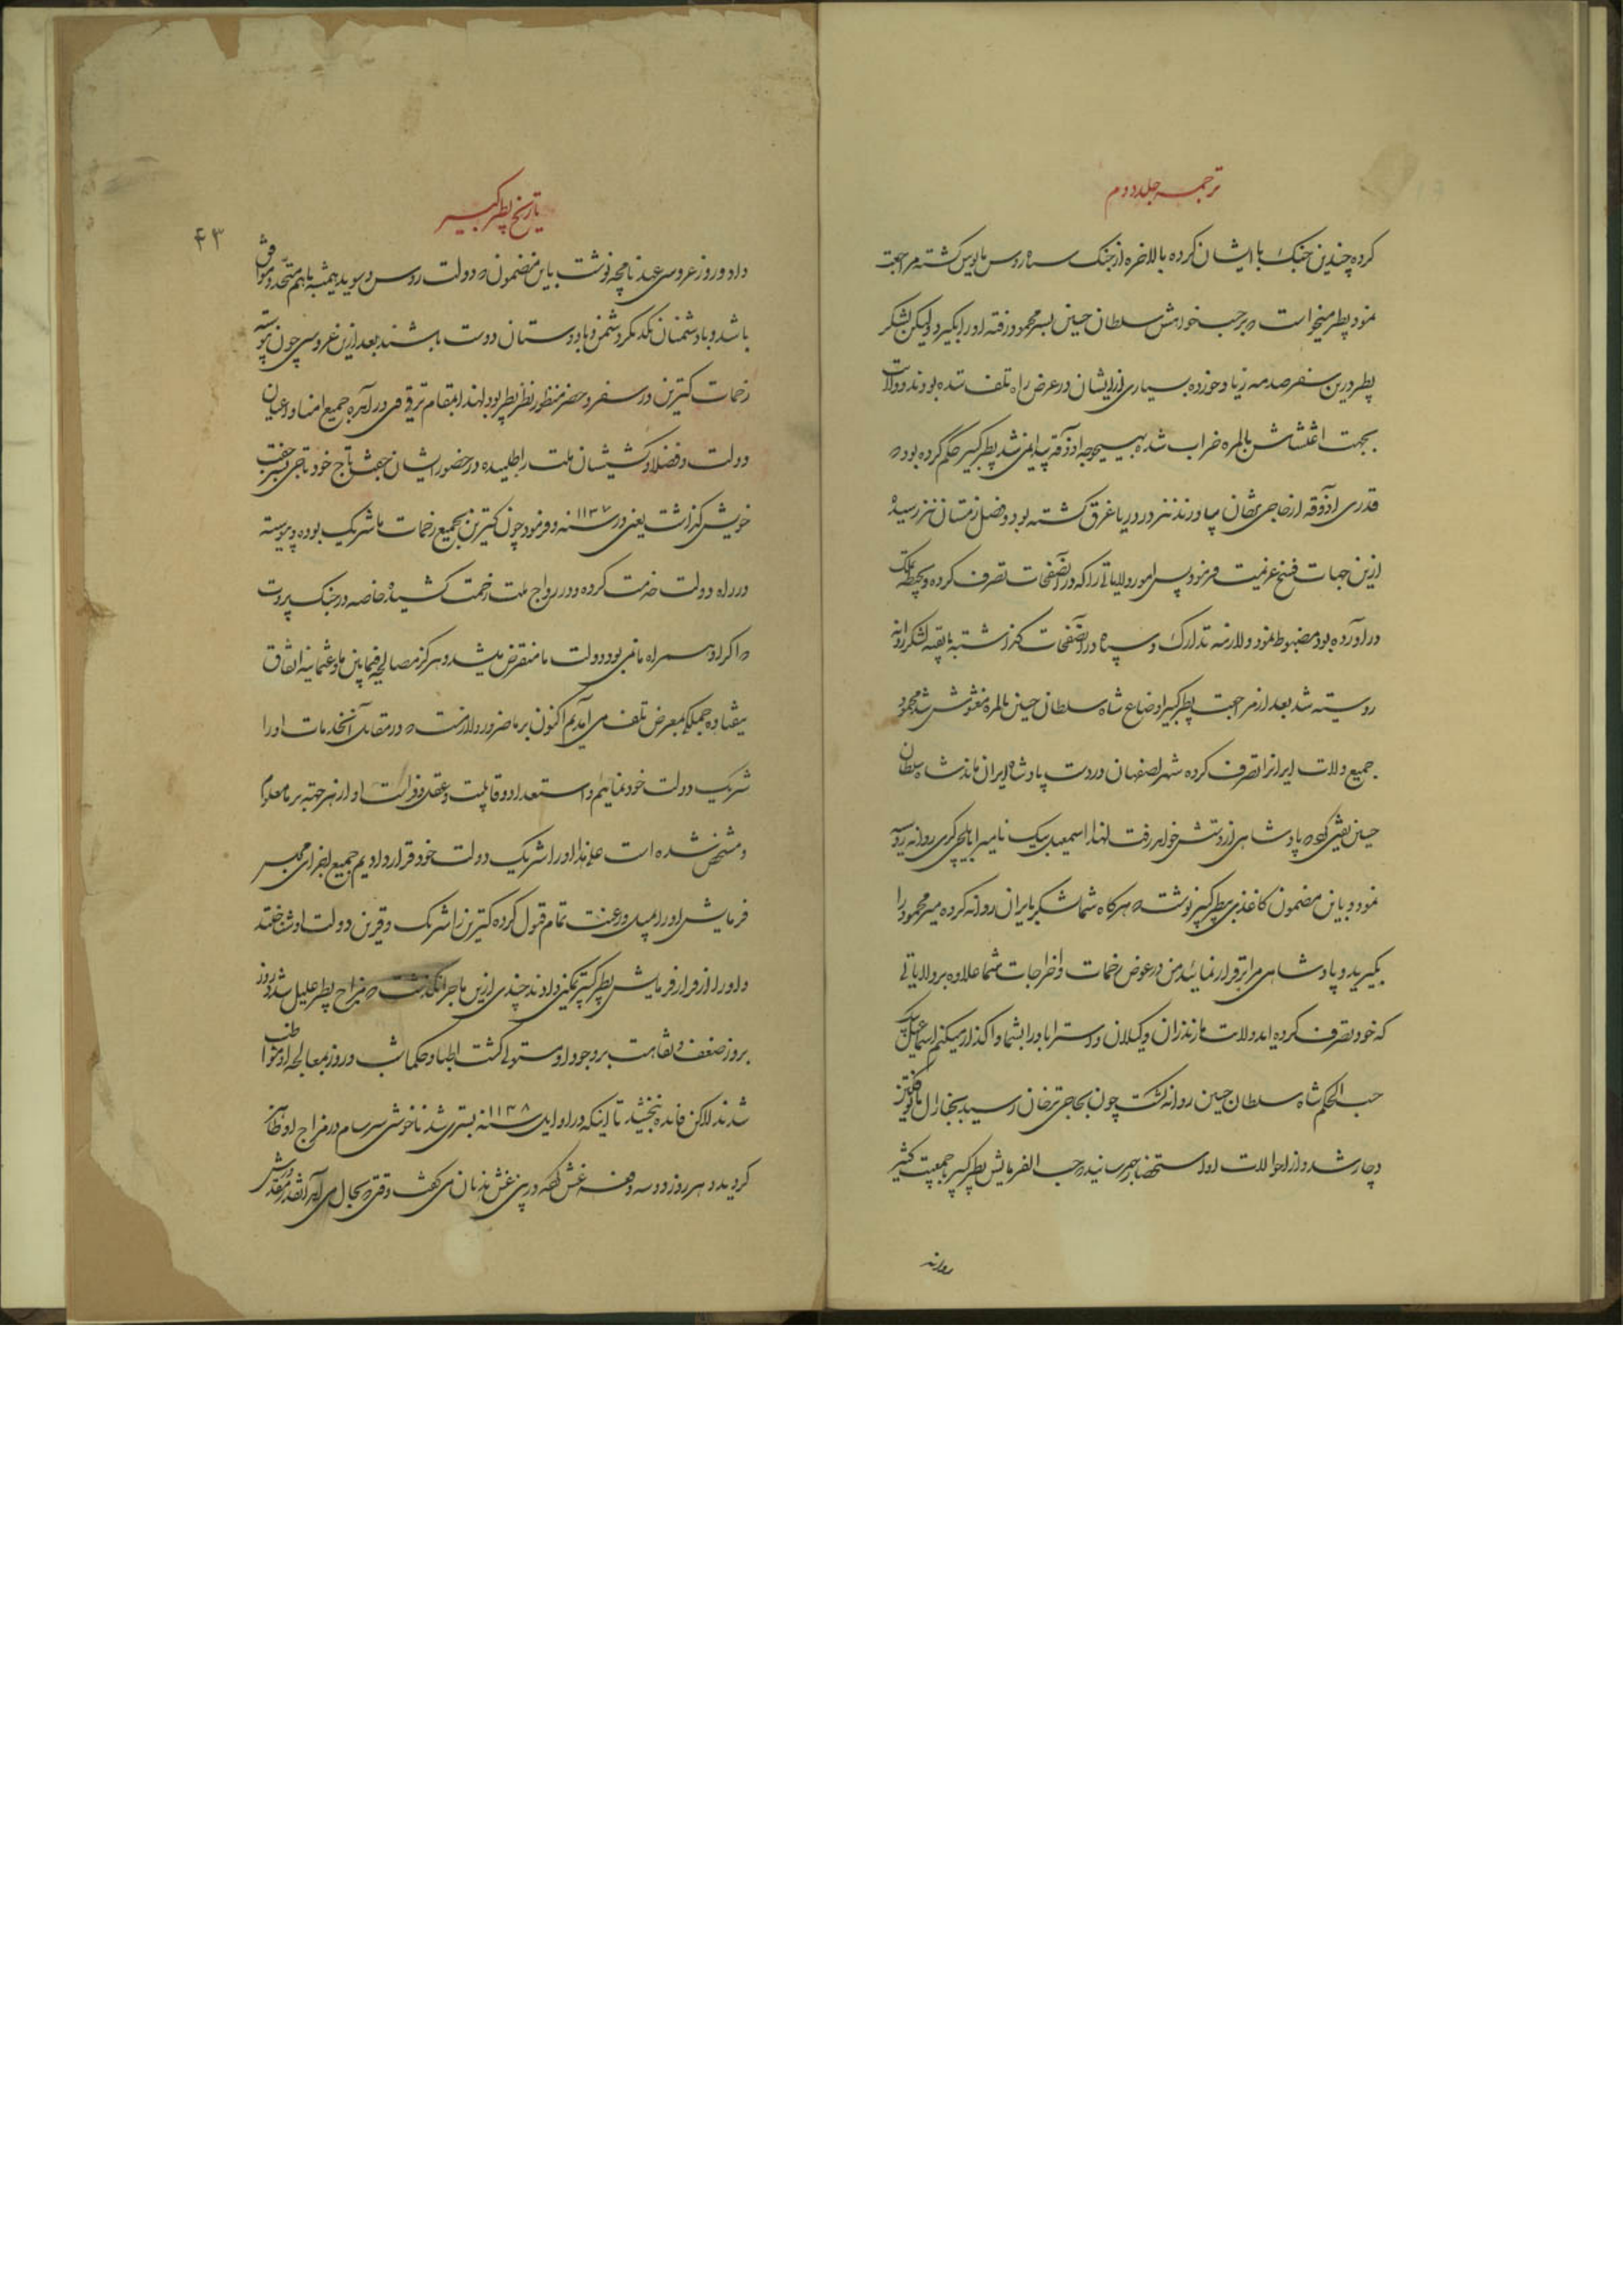 ترجمه جلد دوم
کرده چندین جنگ با ایشان کرده بالاخره از جنگ سپاه روس مایوس کشته مراجعت
نمود پطر میخواست که بر حسب خواهش سلطان حسین بسر محمود رفته او را بگیرد و لیکن لشکر
پطر درین سفر صدمه زیاد خورده بسیاری از ایشان در عرض راه تلف شده بودند و ولایت
بجهت اغتشاش بالمره خراب شده بهیچوجه آذوقه پیدا نمی شد پطر کبیر حکم کرده بود که
قدری آذوقه از حاجی ترخان بیاورند نیز در دریا غرق کشته بود و فصل زمستان نیز رسیده
ازین جهات فسخ عزیمت فرمود پس امور ولایاتی را که در آنصفحات تصرف کرده و بحیطه تملک
در آورده بود مضبوط نمود و لازمه تدارک و سپاه در آنصفحات کذاشته با بقیه لشکر روانه
روسیه شد بعد از مراجعت پطر کبیر اوضاع شاه سلطان حسین بالمره مغشوش شد محمود
جمیع ولایت ایران را تصرف کرده شهر اصفهان در دست پادشاه ایران ماند شاه سلطان
حسین یقین کرد که پادشاهی از دستش خواهد رفت لهذا اسمعیل بیک نامی را بایلچی کری روانه روسیه
نمود و باین مضمون کاغذی بپطر کبیر نوشت که هرکاه شما لشکر بایران روانه کرده میر محمود را
بگیرید و پادشاهی مرا برقرار نمائید من در عوض زحمات و اخراجات شما علاوه بر ولایاتی
که خود تصرف کرده اید ولایت مازندران و کیلان و استراباد را بشما واکذار میکنم اسماعیل بیک
حسب الحکم شاه سلطان حسین روانه کشت چون بحاجی ترخان رسید بجنرال
دچار شد و از احوالات او استحضار بهم رسانیده حسب الفرمایش پطر کبیر با جمعیت کثیر
روانه
تاریخ پطر کبیر
۴۳
داد و روز عروسی عهد نامچه نوشت باین مضمون که دولت روس و سوید همیشه با هم متحد و موافق
باشد و با دشمنان یکدیگر دشمن و با دوستان دوست باشند بعد ازین عروسی چون پیوسته
زحمات کترین در سفر و حضر منظور نظر پطر بود لهذا بمقام ترقی وی در آمده جمیع امنا و اعیان
دولت و فضلا و کشیشان ملت را طلبیده در حضور ایشان جفت تاج خود تاجی بسر جفت
خویش کذاشت یعنی در سنه ۱۱۳۷ و فرمود چون کترین بجمیع زحمات ما شریک بوده و پیوسته
در راه دولت خدمت کرده و در رواج ملت زحمت کشیده خاصه در جنک پروت
که اگر او همراه ما نمی بود دولت ما منقرض میشد و هرکز مصالحه فیما بین ما و عثمانیه اتفاق
نیفتاده جملگی بمعرض تلف می آمدیم اکنون بر ما ضرور و لازمست که در مقابل آنخدمات او را
شریک دولت خود نمائیم و استعداد و قابلیت و عقل و فراست او از هر جهته بر ما معلوم
و مشخص شده است علیهذا او را شریک دولت خود قرار دادیم جمیع اجزای مجلس
فرمایش او را بمیل و رغبت تمام قبول کرده کترین را شریک و قرین دولت او شناختند
و او را از قرار فرمایش پطر کبیر تمکین دادند چندی ازین ماجرا نکذشت که مزاج پطر علیل شد و روز
بروز ضعف و نقاهت بر وجود او مستولی کشت اطبا و حکما شب و روز بمعالجه او مواظب
شدند لاکن فایده نبخشید تا اینکه در اوایل سنه ۱۱۳۸ بستری شد ناخوشی سرسام در مزاج او ظاهر
کردید و هر روز دو سه دفعه غش کرده در پی غش هذیان می کفت وقتی که بحال می آمد